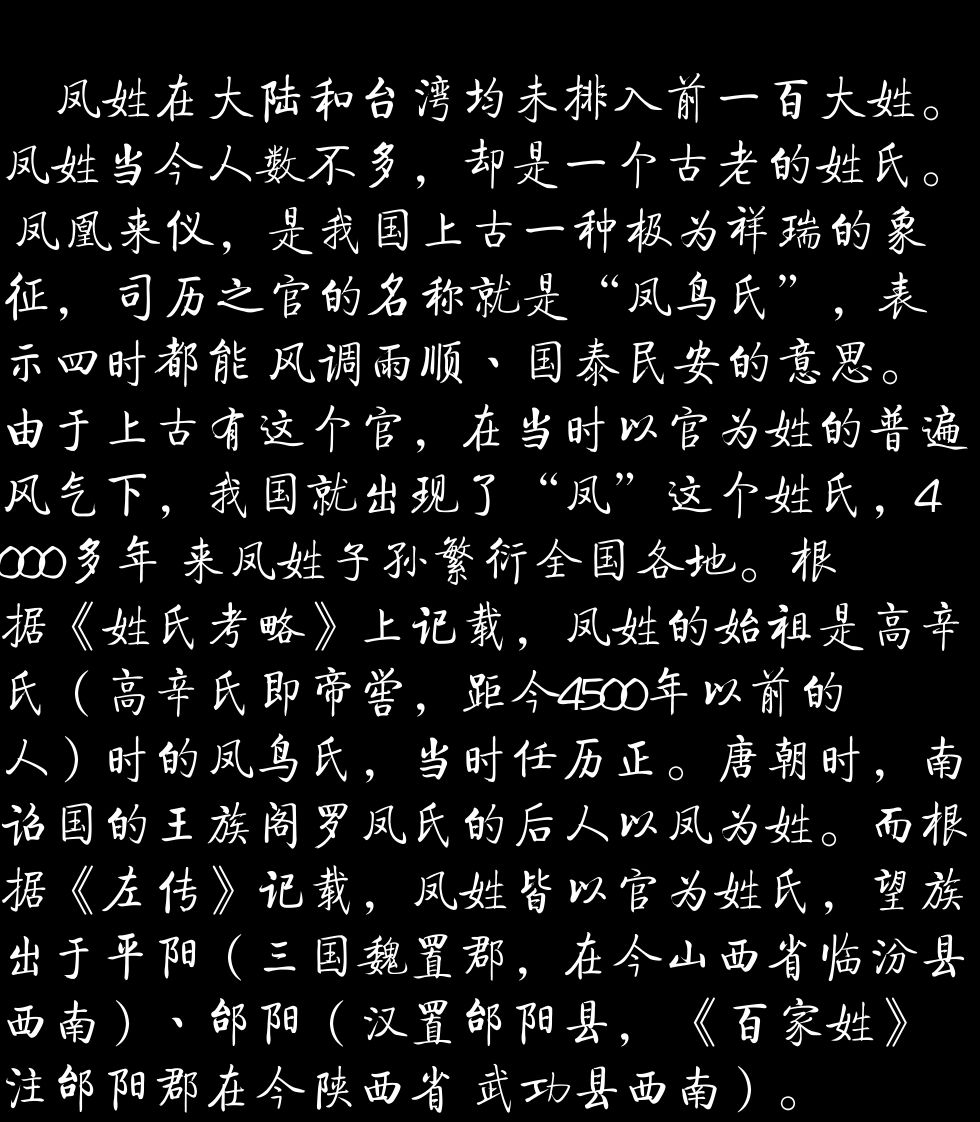 凤姓在大陆和台湾均未排入前一百大姓。
凤姓当今人数不多，却是一个古老的姓氏。
凤凰来仪，是我国上古一种极为祥瑞的象
征，司历之官的名称就是“凤鸟氏”，表
示四时都能 风调雨顺、国泰民安的意思。
由于上古有这个官，在当时以官为姓的普遍
风气下，我国就出现了“凤”这个姓氏，4
000多年 来凤姓子孙繁衍全国各地。根
据《姓氏考略》上记载，凤姓的始祖是高辛
氏（高辛氏即帝喾，距今4500年以前的
人）时的凤鸟氏，当时任历正。唐朝时，南
诏国的王族阁罗凤氏的后人以凤为姓。而根
据《左传》记载，凤姓皆以官为姓氏，望族
出于平阳（三国魏置郡，在今山西省临汾县
西南）、邰阳（汉置邰阳县，《百家姓》
注邰阳郡在今陕西省 武功县西南）。